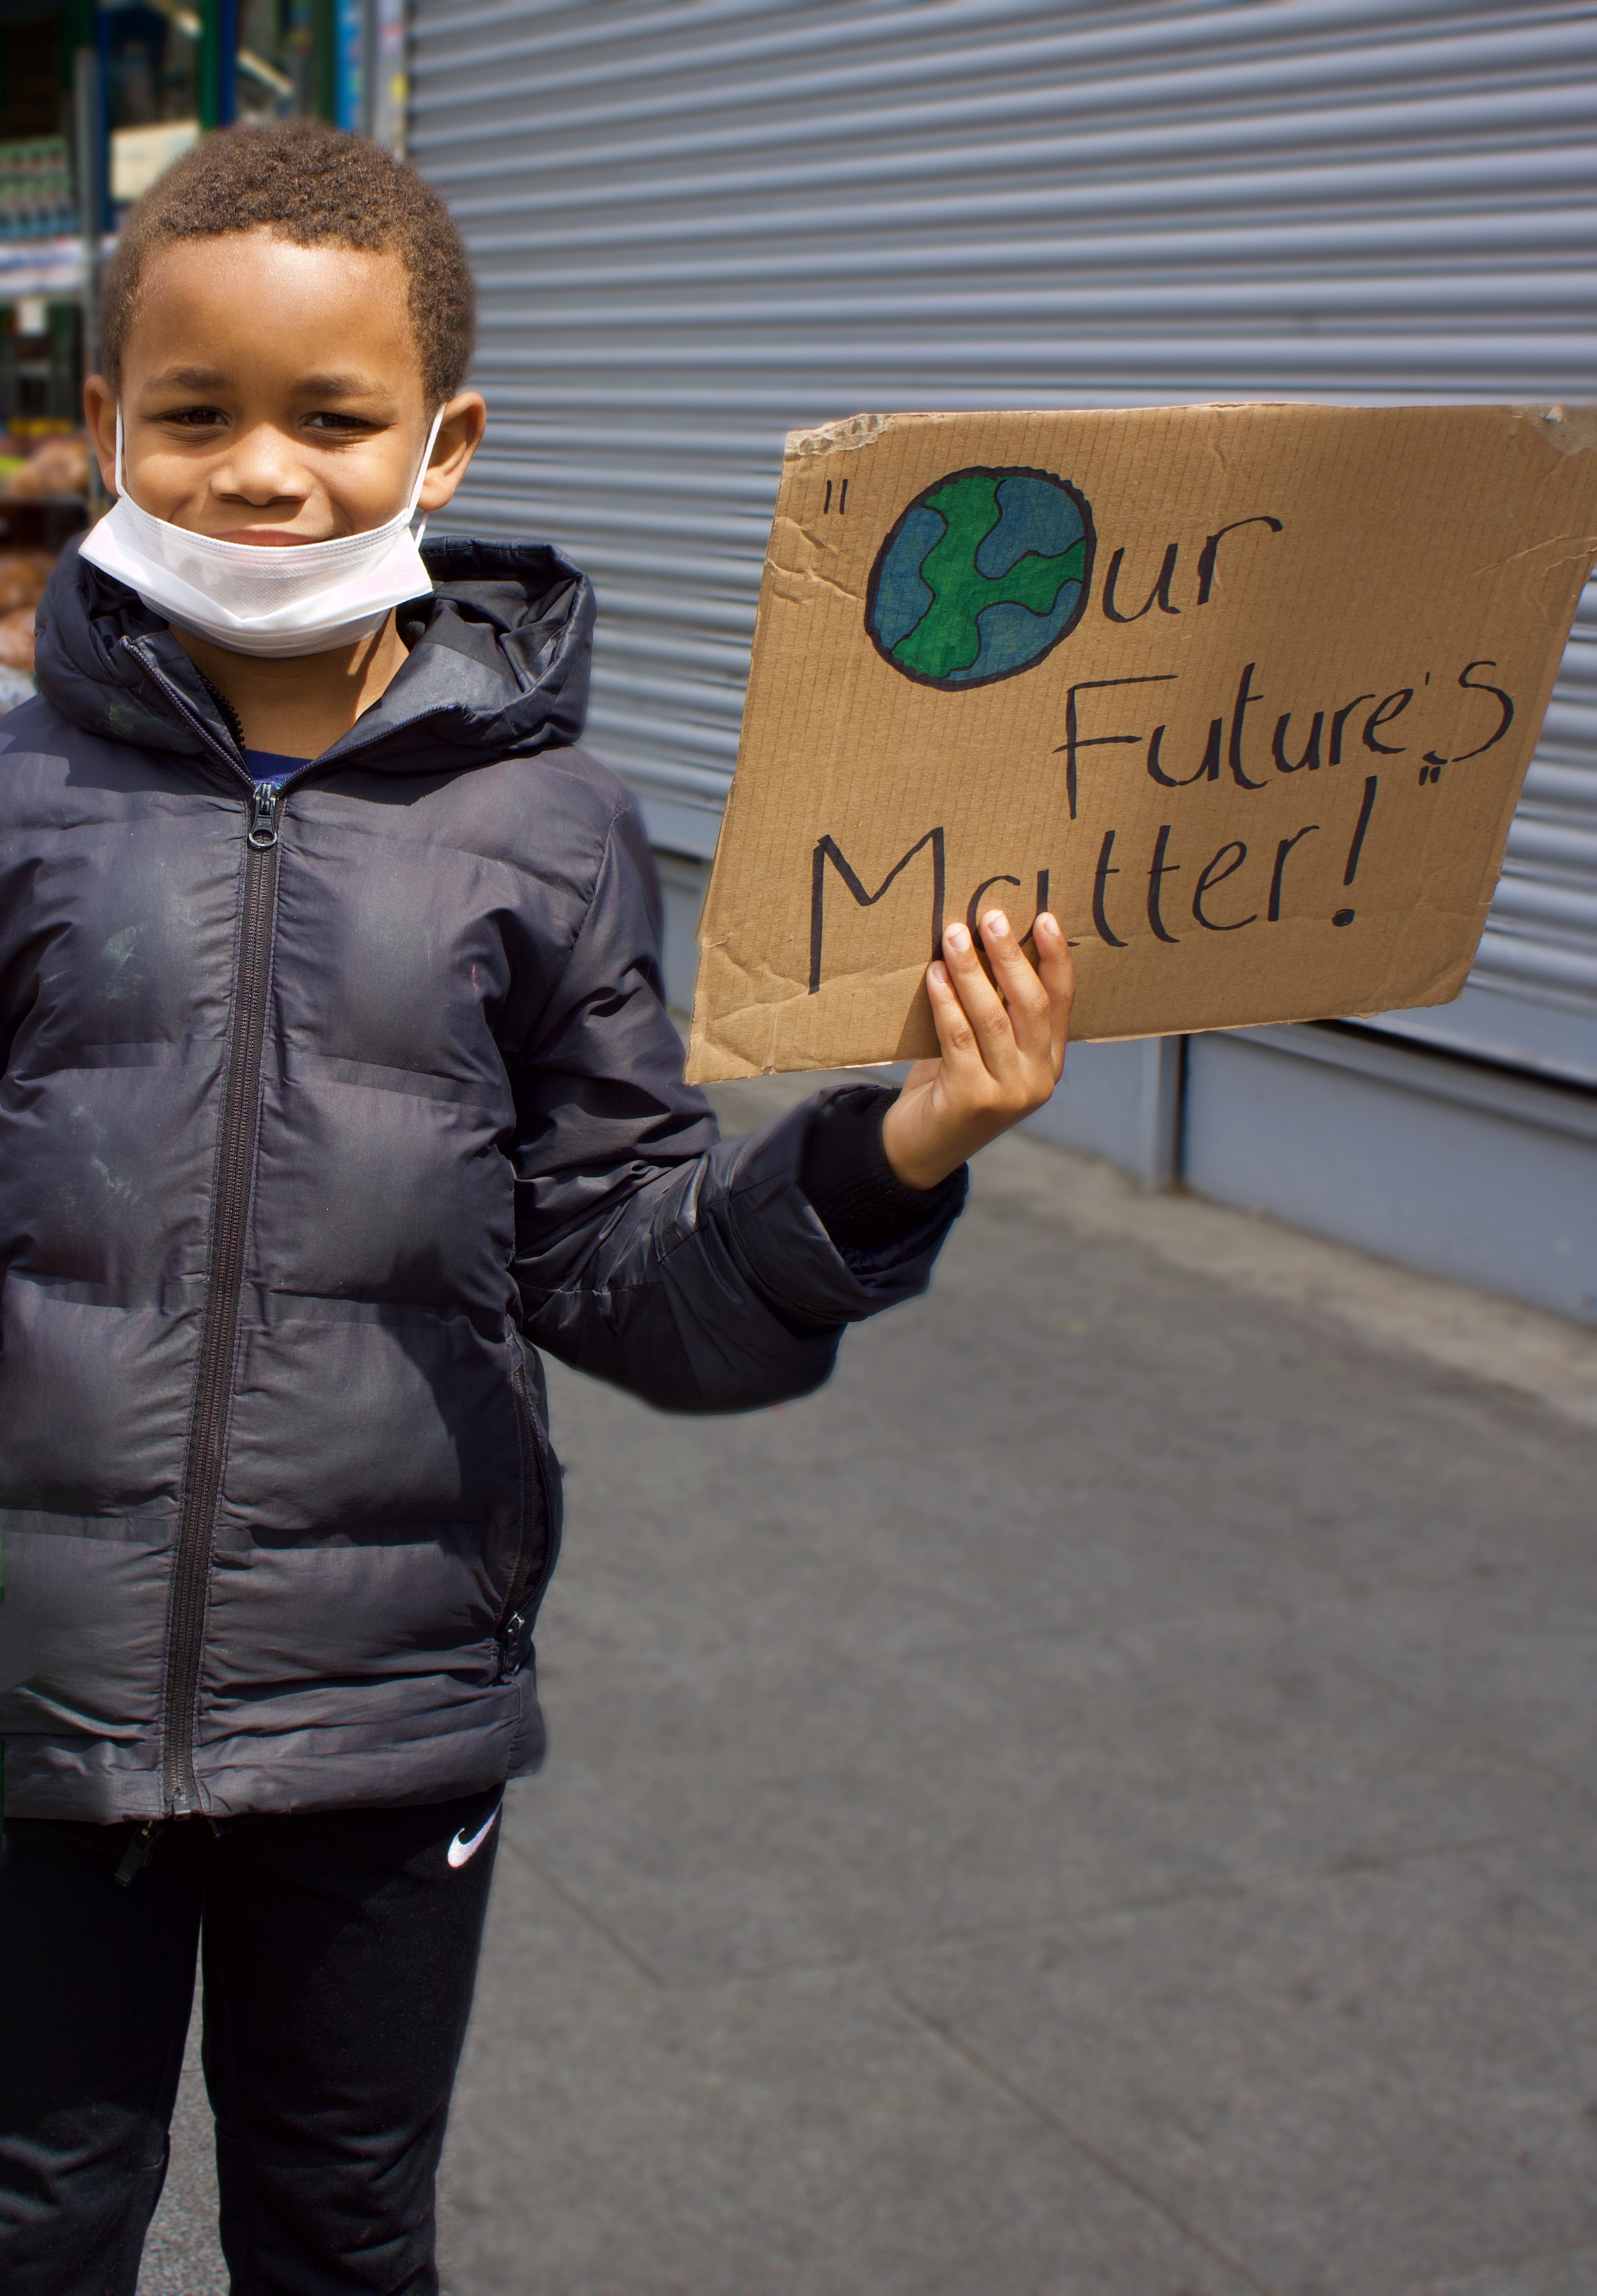 "Our
Future's
Matter!"